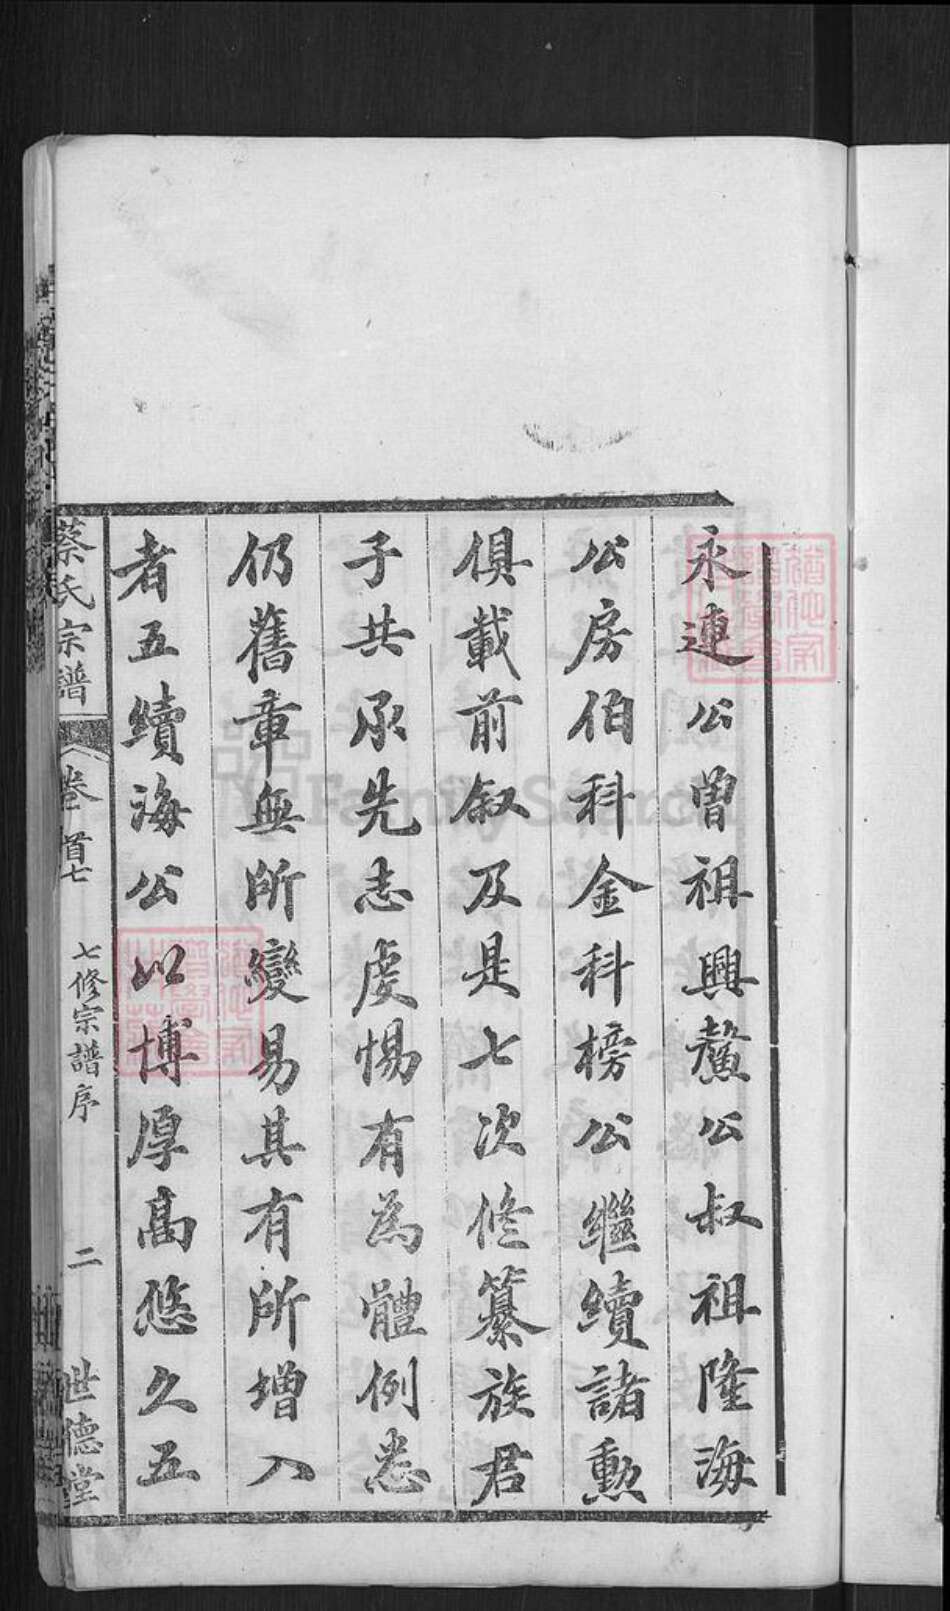 永連公曽祖興鰲公叔祖隆海
公房伯科金科榜公繼續諸勳
俱載前叙及是七次修纂族君
子共承先志虔惕有為體例悉
仍舊章無所變易其有所增入
者五續海公以博厚高悠久五
蔡氏宗譜
卷首七
七修宗譜序
二
世德堂
FamilySearch